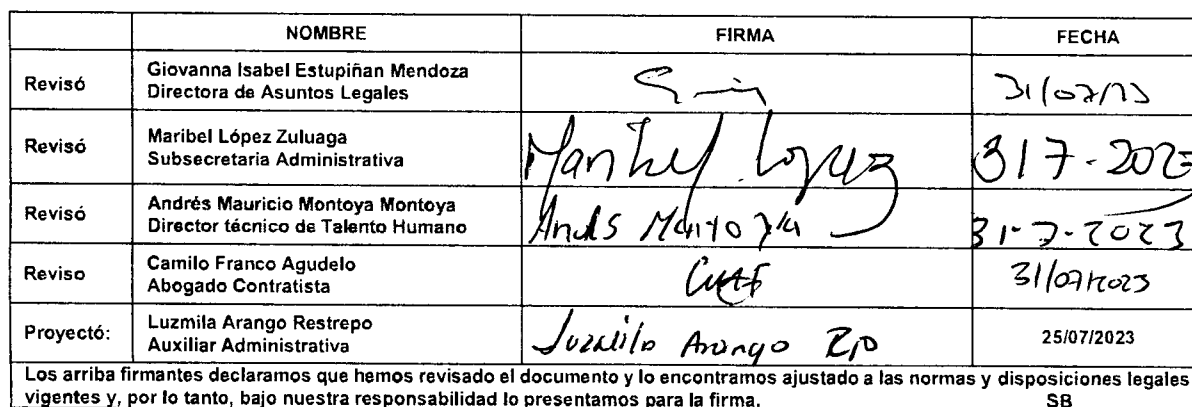 NOMBRE FIRMA FECHA
Revisó Giovanna Isabel Estupiñan Mendoza
Directora de Asuntos Legales
31/07/23
Revisó Maribel López Zuluaga
Subsecretaria Administrativa
Maribel López 31 7-2023
Revisó Andrés Mauricio Montoya Montoya
Director técnico de Talento Humano
Andrés Montoya 31-7-2023
Reviso Camilo Franco Agudelo
Abogado Contratista
31/07/2023
Proyectó: Luzmila Arango Restrepo
Auxiliar Administrativa
Luzmila Arango 25/07/2023
Los arriba firmantes declaramos que hemos revisado el documento y lo encontramos ajustado a las normas y disposiciones legales
vigentes y, por lo tanto, bajo nuestra responsabilidad lo presentamos para la firma. SB